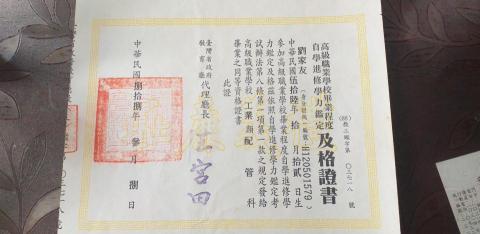 高級職業學校畢業程度
自學進修學力鑑定
及格證書
(88)教三職字第〇三七一八號
劉家友(身分證統一編號:H120501579)
中華民國伍拾陸年拾月拾貳日生
參加高級職業學校畢業程度自學進修學
力鑑定及格茲依照自學進修學力鑑定考
試辦法第八條第一項第一款之規定發給
高級職業學校工業類配管科
畢業之同等資格證書
此證
臺灣省政府
教育廳
代理廳長
宮田
中華民國捌拾捌年參月捌日